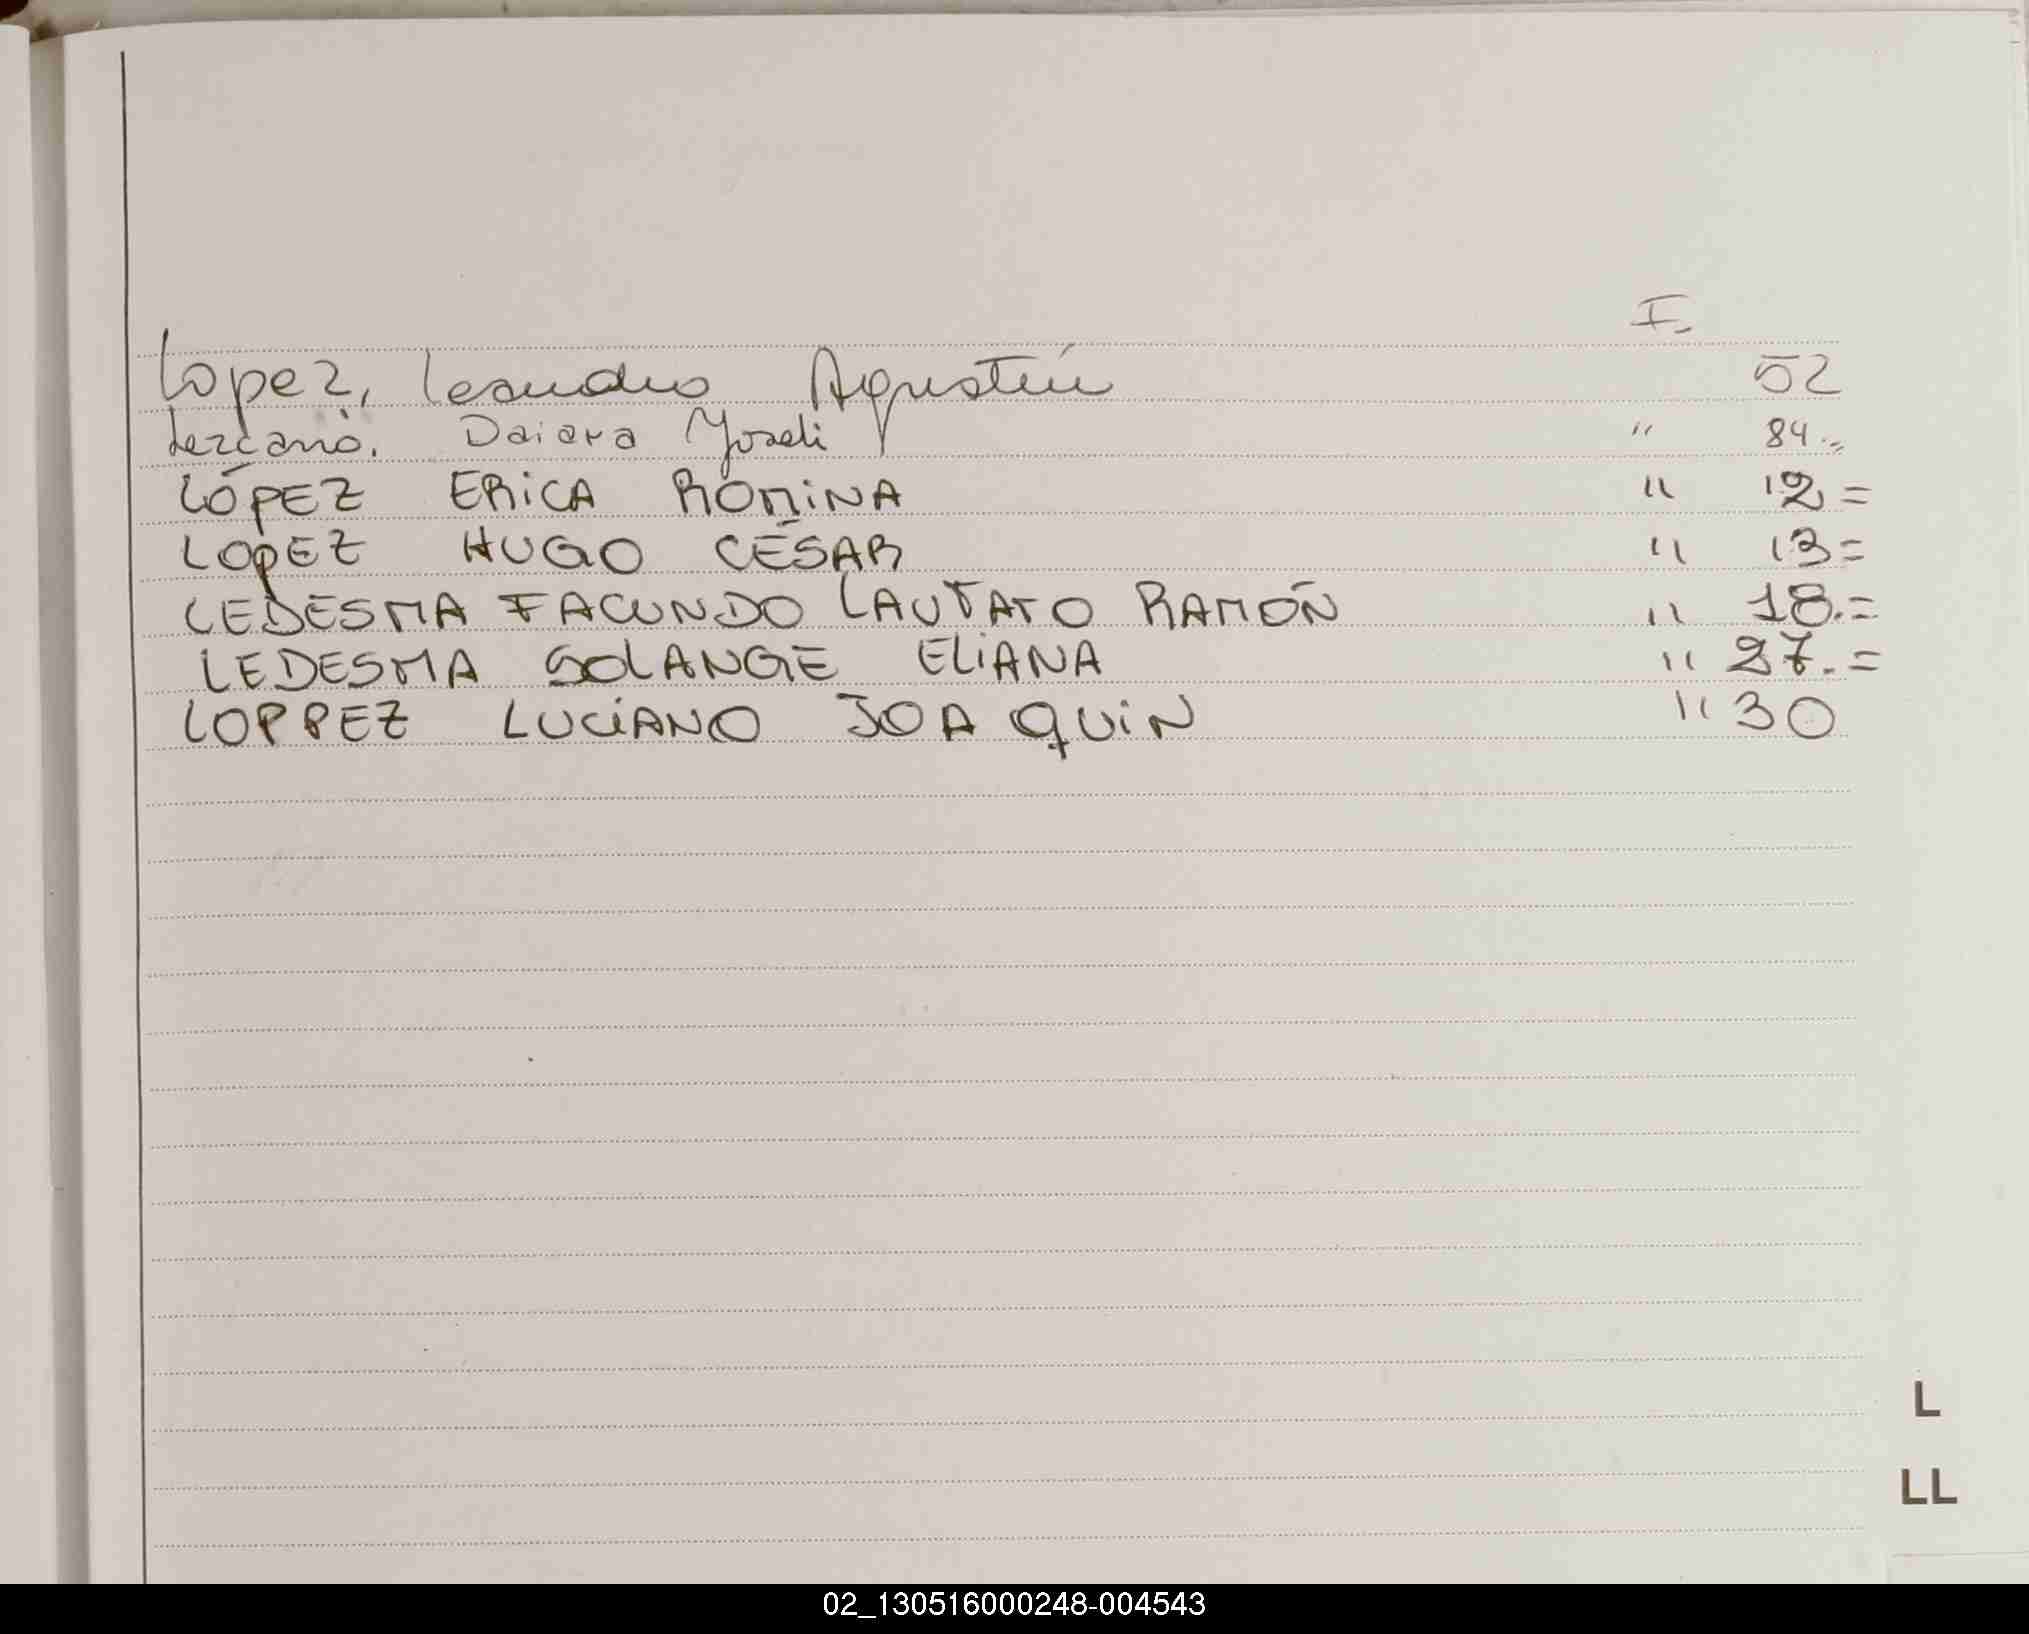 I.
Lopez, Leandro Agustín 52
Lezcano. Daiara Yoseli " 84.=
LÓPEZ ERICA ROMINA " 12=
LOPEZ HUGO CÉSAR " 13=
LEDESMA FACUNDO LAUTATO RAMÓN " 18.=
LEDESMA SOLANGE ELIANA " 27.=
LOPPEZ LUCIANO JOAQUIN " 30
L
LL
02_130516000248-004543